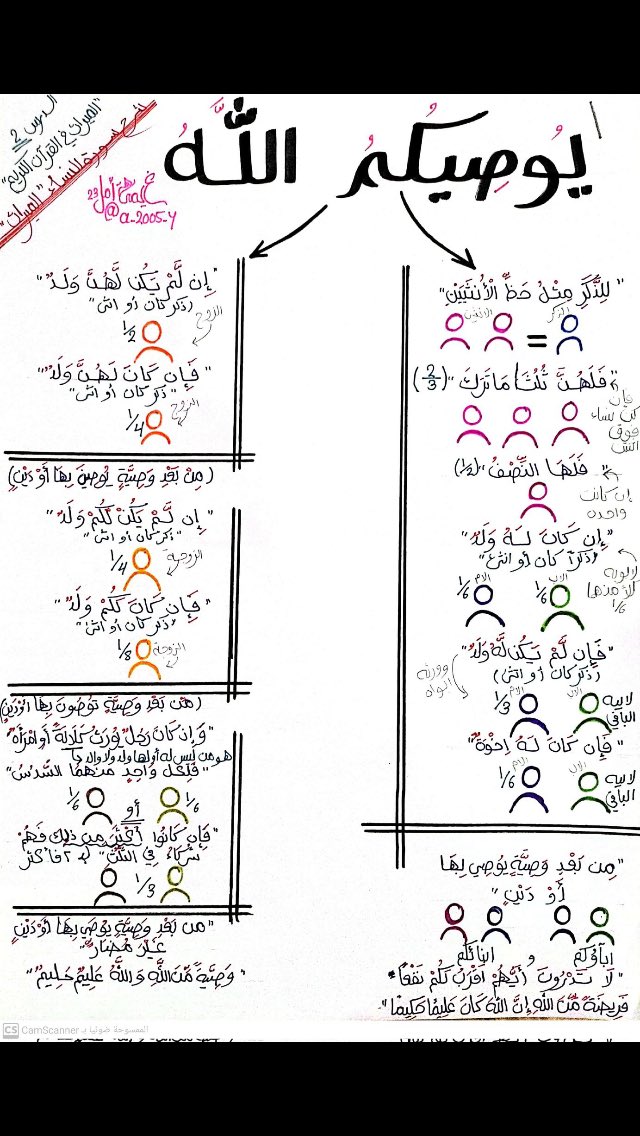 الدرس 2
"الميراث في القرآن الكريم"
شرح سورة النساء "الميراث"
23
@a-2005-y
يُوصِيكُمُ اللَّهُ
"لِلذَّكَرِ مِثْلُ حَظِّ الْأُنثَيَيْنِ"
الذكر
الانثيين
=
"فَلَهُنَّ ثُلُثَا مَا تَرَكَ" (2/3)
فإن
كن نساء
فوق
اثنتين
"فَلَهَا النِّصْفُ" (1/2)
إن كانت
واحدة
"إِن كَانَ لَهُ وَلَدٌ"
"ذكراً كان أو انثى"
الام 1/6
الاب 1/6
لابويه
لكل منهما
1/6
"فَإِن لَّمْ يَكُن لَّهُ وَلَدٌ"
(ذكر كان أو انثى)
وورثه
ابواه
الام 1/3
الاب
لابيه
الباقي
"فَإِن كَانَ لَهُ إِخْوَةٌ"
الام 1/6
الاب
لابيه
الباقي
"مِن بَعْدِ وَصِيَّةٍ يُوصِي بِهَا
أَوْ دَيْنٍ"
ابآؤكم
و
ابنائكم
"لَا تَدْرُونَ أَيُّهُمْ أَقْرَبُ لَكُمْ نَفْعًا"
فَرِيضَةً مِّنَ اللَّهِ إِنَّ اللَّهَ كَانَ عَلِيمًا حَكِيمًا"
"إِن لَّمْ يَكُن لَّهُنَّ وَلَدٌ"
(ذكر كان أو انثى"
الزوج
1/2
"فَإِن كَانَ لَهُنَّ وَلَدٌ"
"ذكر كان أو انثى"
الزوج
1/4
(مِنْ بَعْدِ وَصِيَّةٍ يُوصِينَ بِهَا أَوْ دَيْنٍ)
"إِن لَّمْ يَكُنْ لَّكُمْ وَلَدٌ"
"ذكر كان أو انثى"
الزوجة
1/4
"فَإِن كَانَ لَكُمْ وَلَدٌ"
"ذكر كان أو انثى"
الزوجة
1/8
(مِّن بَعْدِ وَصِيَّةٍ تُوصُونَ بِهَا أَوْ دَيْنٍ)
"وَإِن كَانَ رَجُلٌ يُورَثُ كَلَالَةً أَوِ امْرَأَةٌ"
هو من ليس له أو لها ولد ولا والد
"فَلِكُلِّ وَاحِدٍ مِّنْهُمَا السُّدُسُ"
1/6
أو
1/6
"فَإِن كَانُوا أَكْثَرَ مِن ذَلِكَ فَهُمْ
شُرَكَاءُ فِي الثُّلُثِ" 2 فأكثر
1/3
"مِن بَعْدِ وَصِيَّةٍ يُوصَى بِهَا أَوْ دَيْنٍ
غَيْرَ مُضَارٍّ"
"وَصِيَّةً مِّنَ اللَّهِ وَاللَّهُ عَلِيمٌ حَلِيمٌ"
CS CamScanner الممسوحة ضوئيا بـ